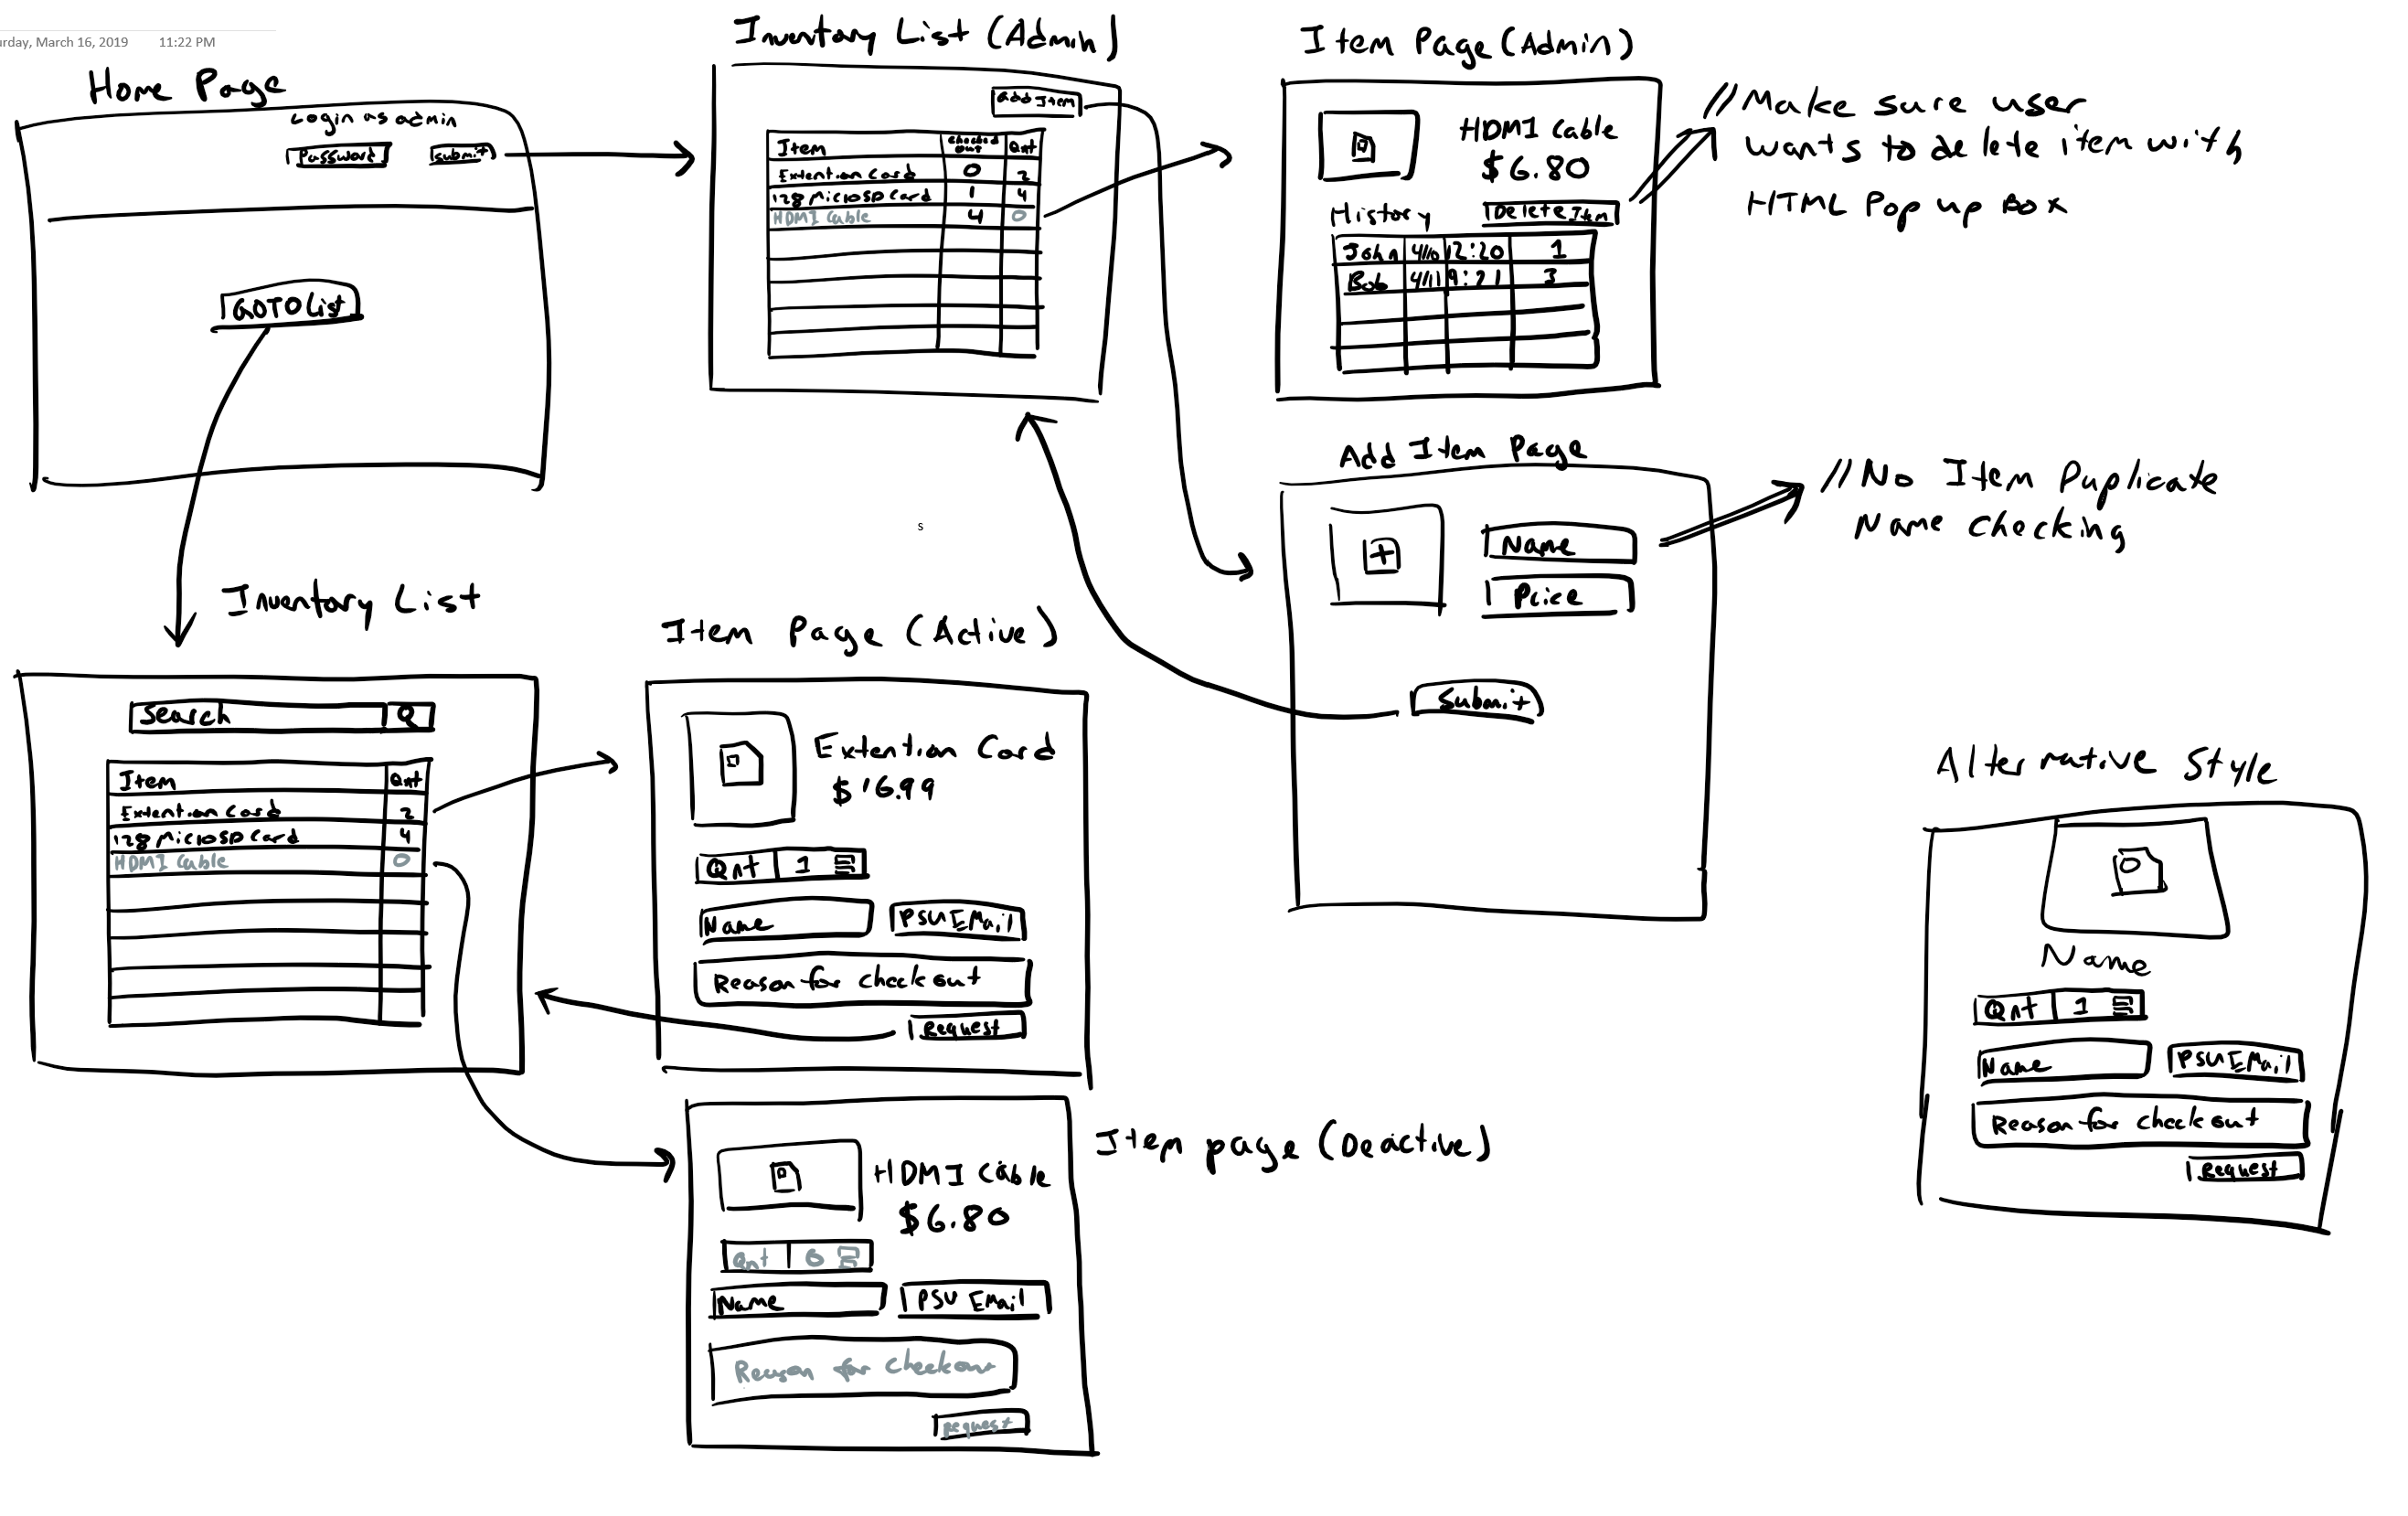 urday, March 16, 2019 11:22 PM
Home Page
Login as admin
Password Submit
GOTO List
Inventory List (Admin)
Add Item
Item Checked Out Qnt
Extention Cord 0 2
128 MicroSD Card 1 4
HDMI Cable 4 0
Item Page (Admin)
HDMI Cable
$6.80
History Delete Item
John 4/10 12:20 1
Bob 4/11 9:21 3
// Make sure user
wants to delete item with
HTML Pop up Box
Add Item Page
+ Name
Price
Submit
// No Item Duplicate
Name checking
s
Inventory List
Search
Item Qnt
Extention Cord 2
128 MicroSD Card 4
HDMI Cable 0
Item Page (Active)
Extention Cord
$16.99
Qnt 1
Name PSU EMail
Reason for check out
Request
Item page (Deactive)
HDMI Cable
$6.80
Qnt 0
Name PSU EMail
Reason for Checkout
Request
Alternative Style
Name
Qnt 1
Name PSU EMail
Reason for check out
Request